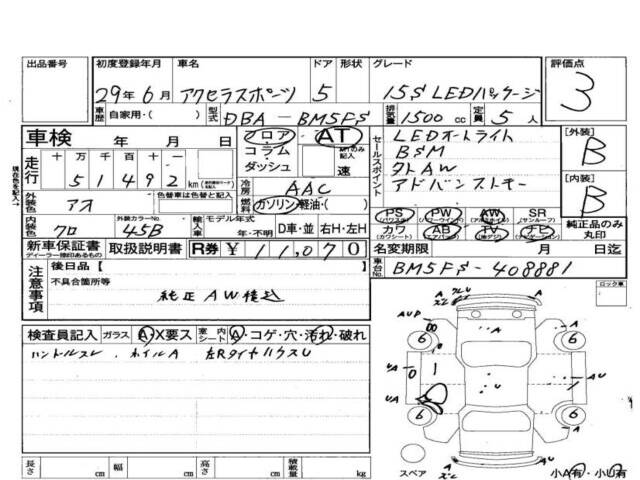 出品番号 初度登録年月 車名 ドア 形状 グレード 評価点
29年6月 アクセラスポーツ 5 15S LEDパッケージ 3
車歴 自家用・( ) 型式 DBA-BM5FS 排気量 1500 cc 定員 5 人
車検 年 月 日 フロア AT セールスポイント LEDオートライト [外装]
走行 十 万 千 百 十 コラム ATのみ記入 BSM B
5 1 4 9 2 km ダッシュ 速 外AW
外装色 アオ 色替車は色替前の色 冷房 AAC アドバンストキー [内装]
燃料 ガソリン・軽油・( ) B
内装色 クロ 外装カラーNo. 45B 輸入車 モデル年式 年・不明 D車・並 右H・左H
PS (パワステ) PW (パワーウインド) AW (アルミホイル) SR (サンルーフ) 純正品のみ
カワ (カワシート) AB (エアバック) TV (地デジ) ナビ (ナビゲーション) 丸印
新車保証書 ディーラー捺印あるもの 取扱説明書 R券 ¥11,070 名変期限 月 日迄
注意事項 後日品 [ ] 車台No. BM5FS-408881
不具合箇所等 ロック車
純正AW積込
検査員記入 ガラス A・X要ス 室内シート A・コゲ・穴・汚れ・破れ
ハンドルスレ ホイルA 左RタイヤハウスU
現在色を記入
A スレU
AUP
A
6 6
UA 0 1 U AU
UA
6 6
スペア A スレ 小A有・小U有
長さ cm 幅 cm 高さ cm 積載量 kg